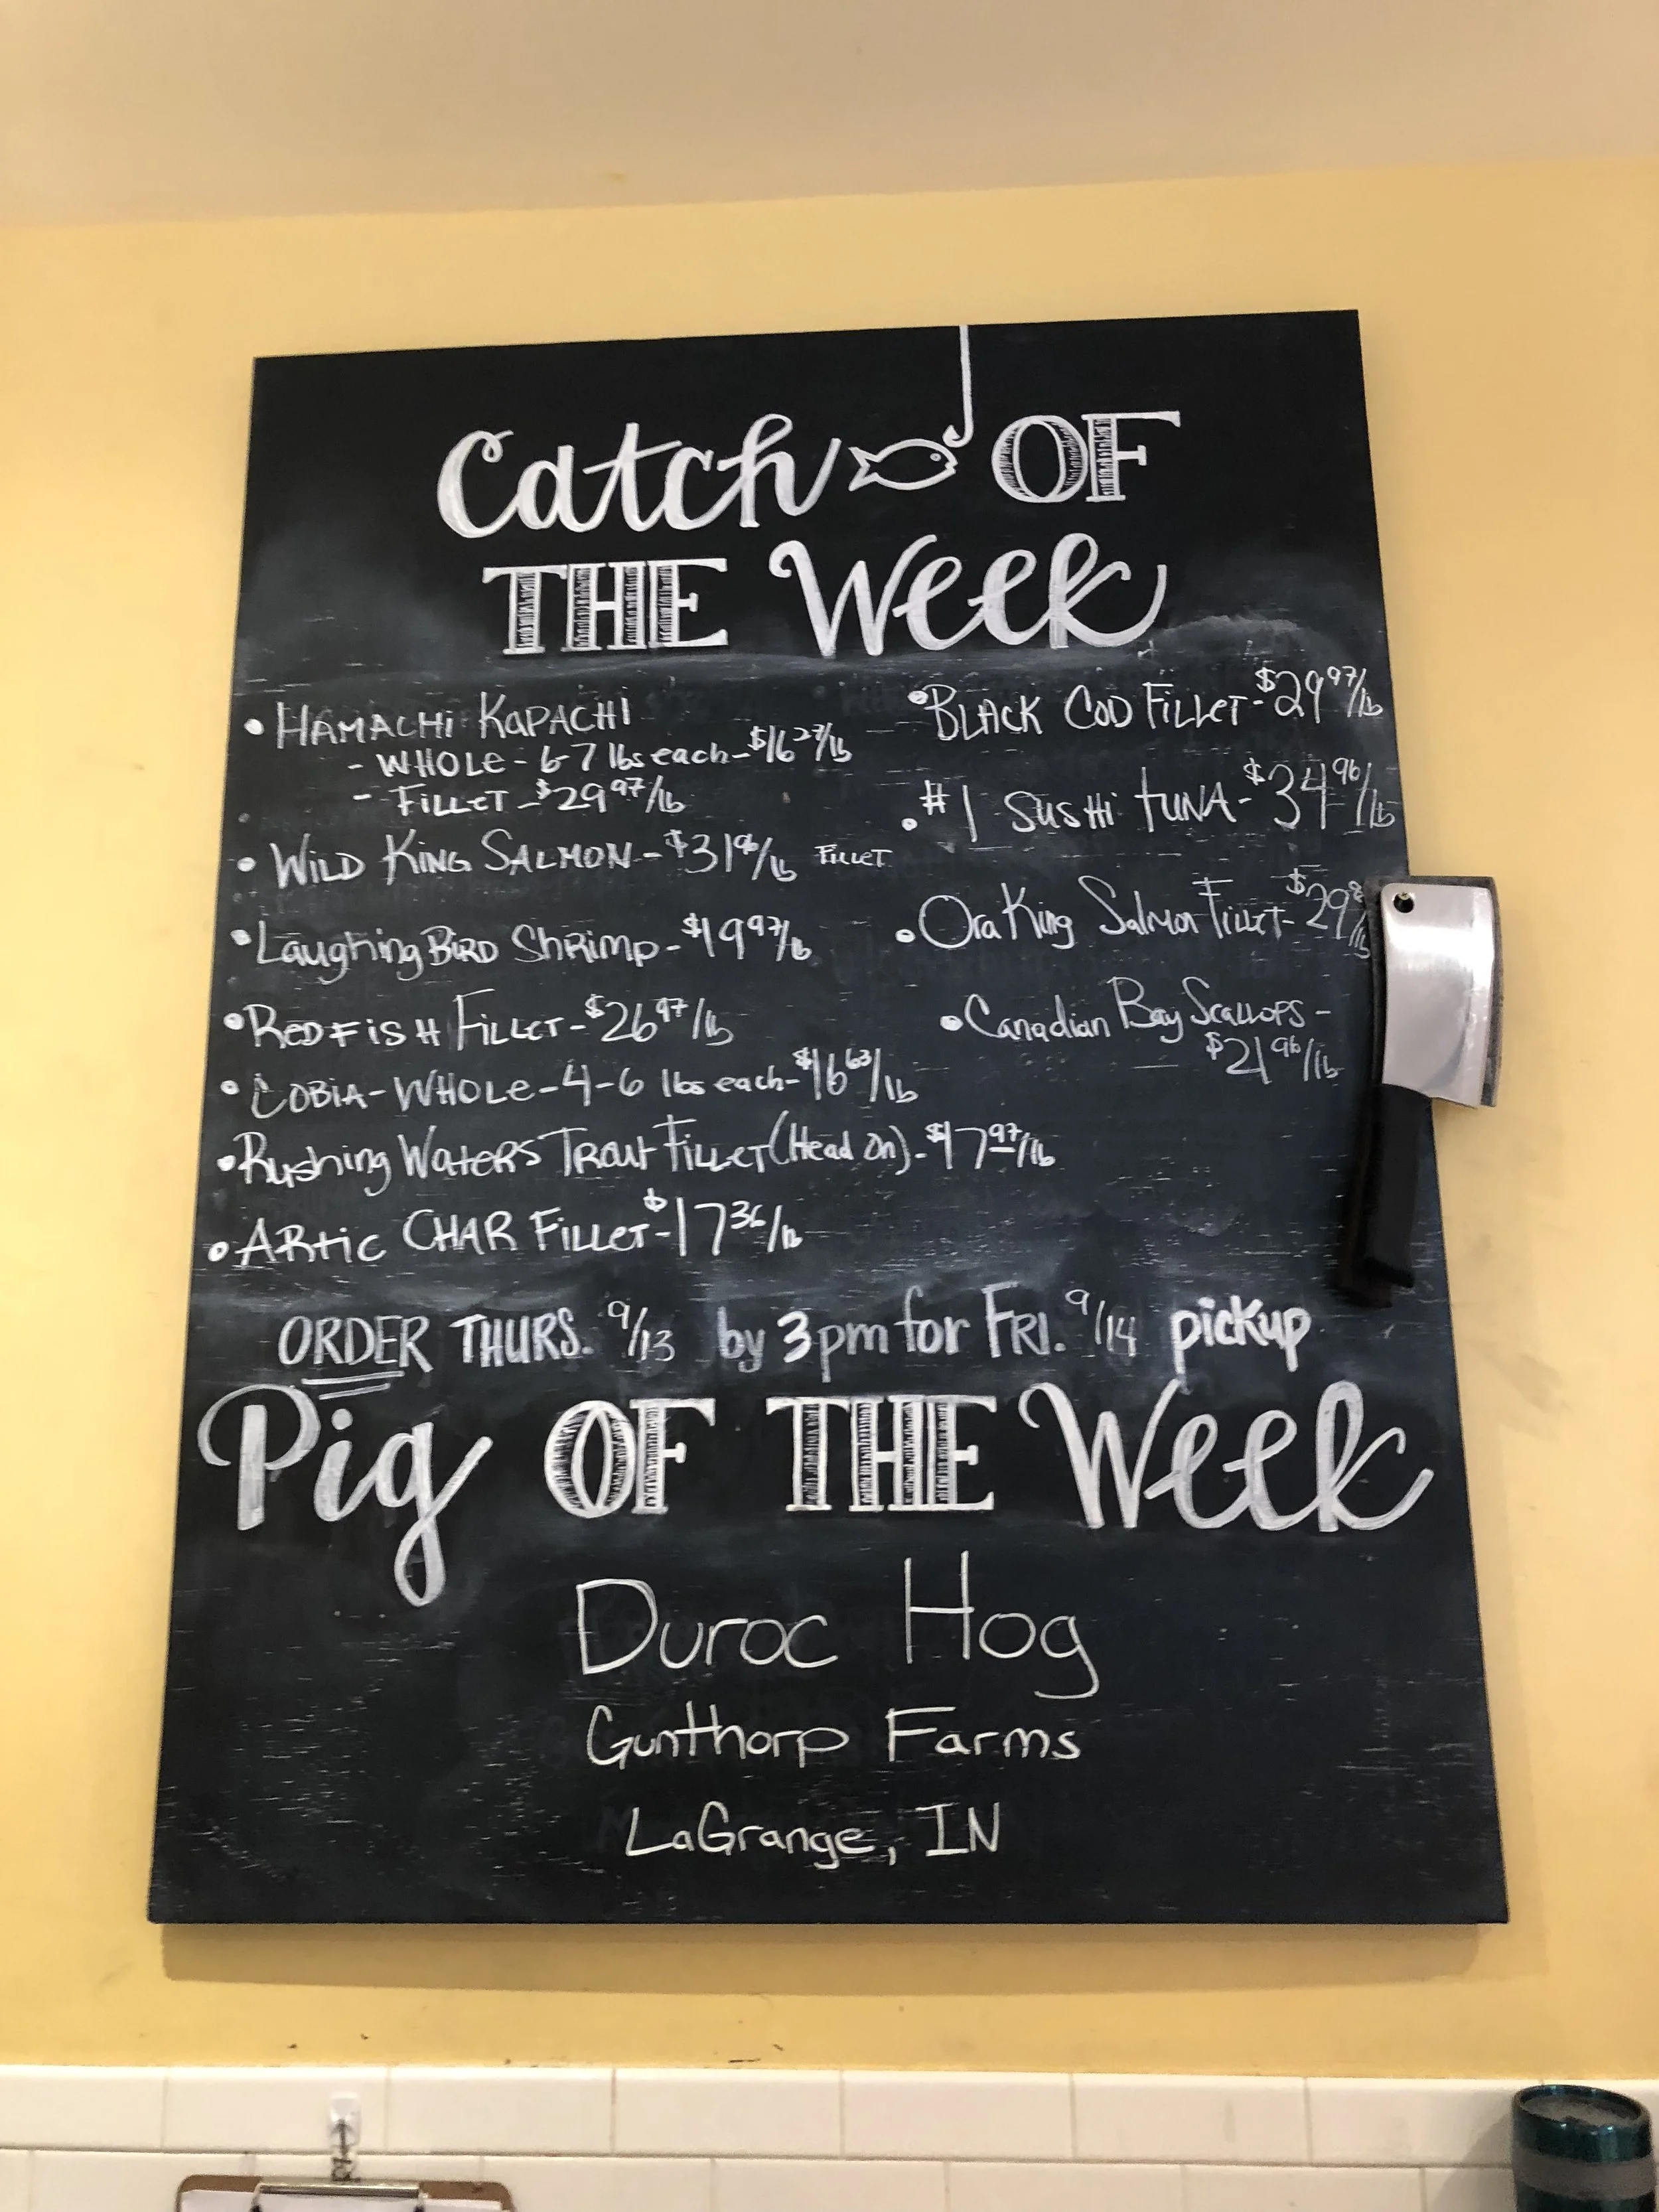 Catch OF
THE Week
• HAMACHi KAPACHI
- WHOLE - 6-7 lbs each - $16 27/lb
- FiLLET - $29 97/lb
• WiLD KiNG SALMON - $31 96/lb FiLLET
• Laughing BIRD Shrimp - $19 97/lb
• REDFiSH FiLLET - $26 97/lb
• COBIA - WHOLE - 4-6 lbs each - $16 63/lb
• Rushing WATERS TROUT FiLLET (Head On) - $17 97/lb
• ARtic CHAR FiLLET - $17 36/lb
• BLACK COD FiLLET - $29 97/lb
• #1 SUSHi TUNA - $34 96/lb
• Ora King Salmon Fillet - $29 /lb
• Canadian Bay SCALLOPS -
$21 96/lb
ORDER THURS. 9/13 by 3pm for FRI. 9/14 pickup
Pig OF THE Week
Duroc Hog
Gunthorp Farms
LaGrange, IN